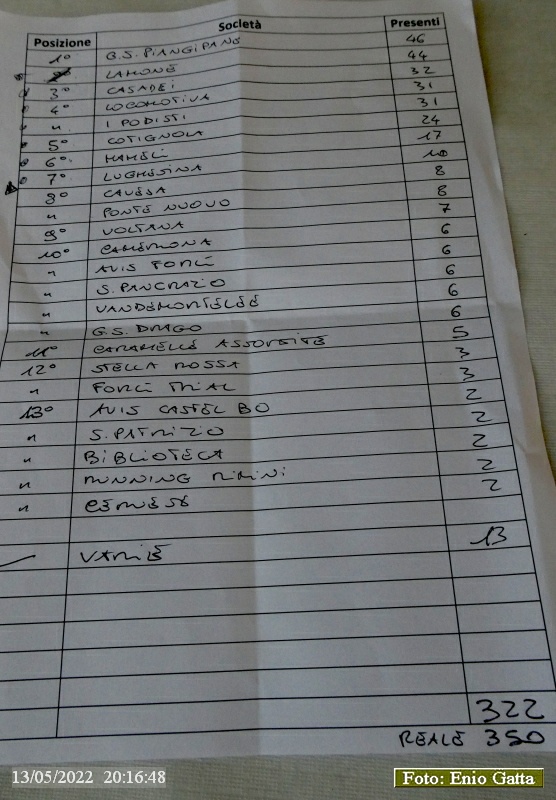 Posizione Società Presenti
1° G.S. PIANGIPANE 46
LAMONE 44
3° CASADEI 32
4° LOCOMOTIVA 31
" I PODISTI 31
5° COTIGNOLA 24
6° MAMELI 17
7° LUGHESINA 10
8° CAVEJA 8
" PONTE NUOVO 8
9° VOLTANA 7
10° CAMERONA 6
" AVIS FORLÌ 6
" S. PANCRAZIO 6
" VANDEMORTELEE 6
" G.S. DRAGO 6
11° CARAMELLE ASSORTITE 5
12° STELLA ROSSA 3
" FORLÌ TRIAL 3
13° AVIS CASTEL BO 2
" S. PATRIZIO 2
" BIBLIOTECA 2
" RUNNING RIMINI 2
" CERVESE 2
VARIE 13
322
REALE 350
13/05/2022 20:16:48
Foto: Enio Gatta